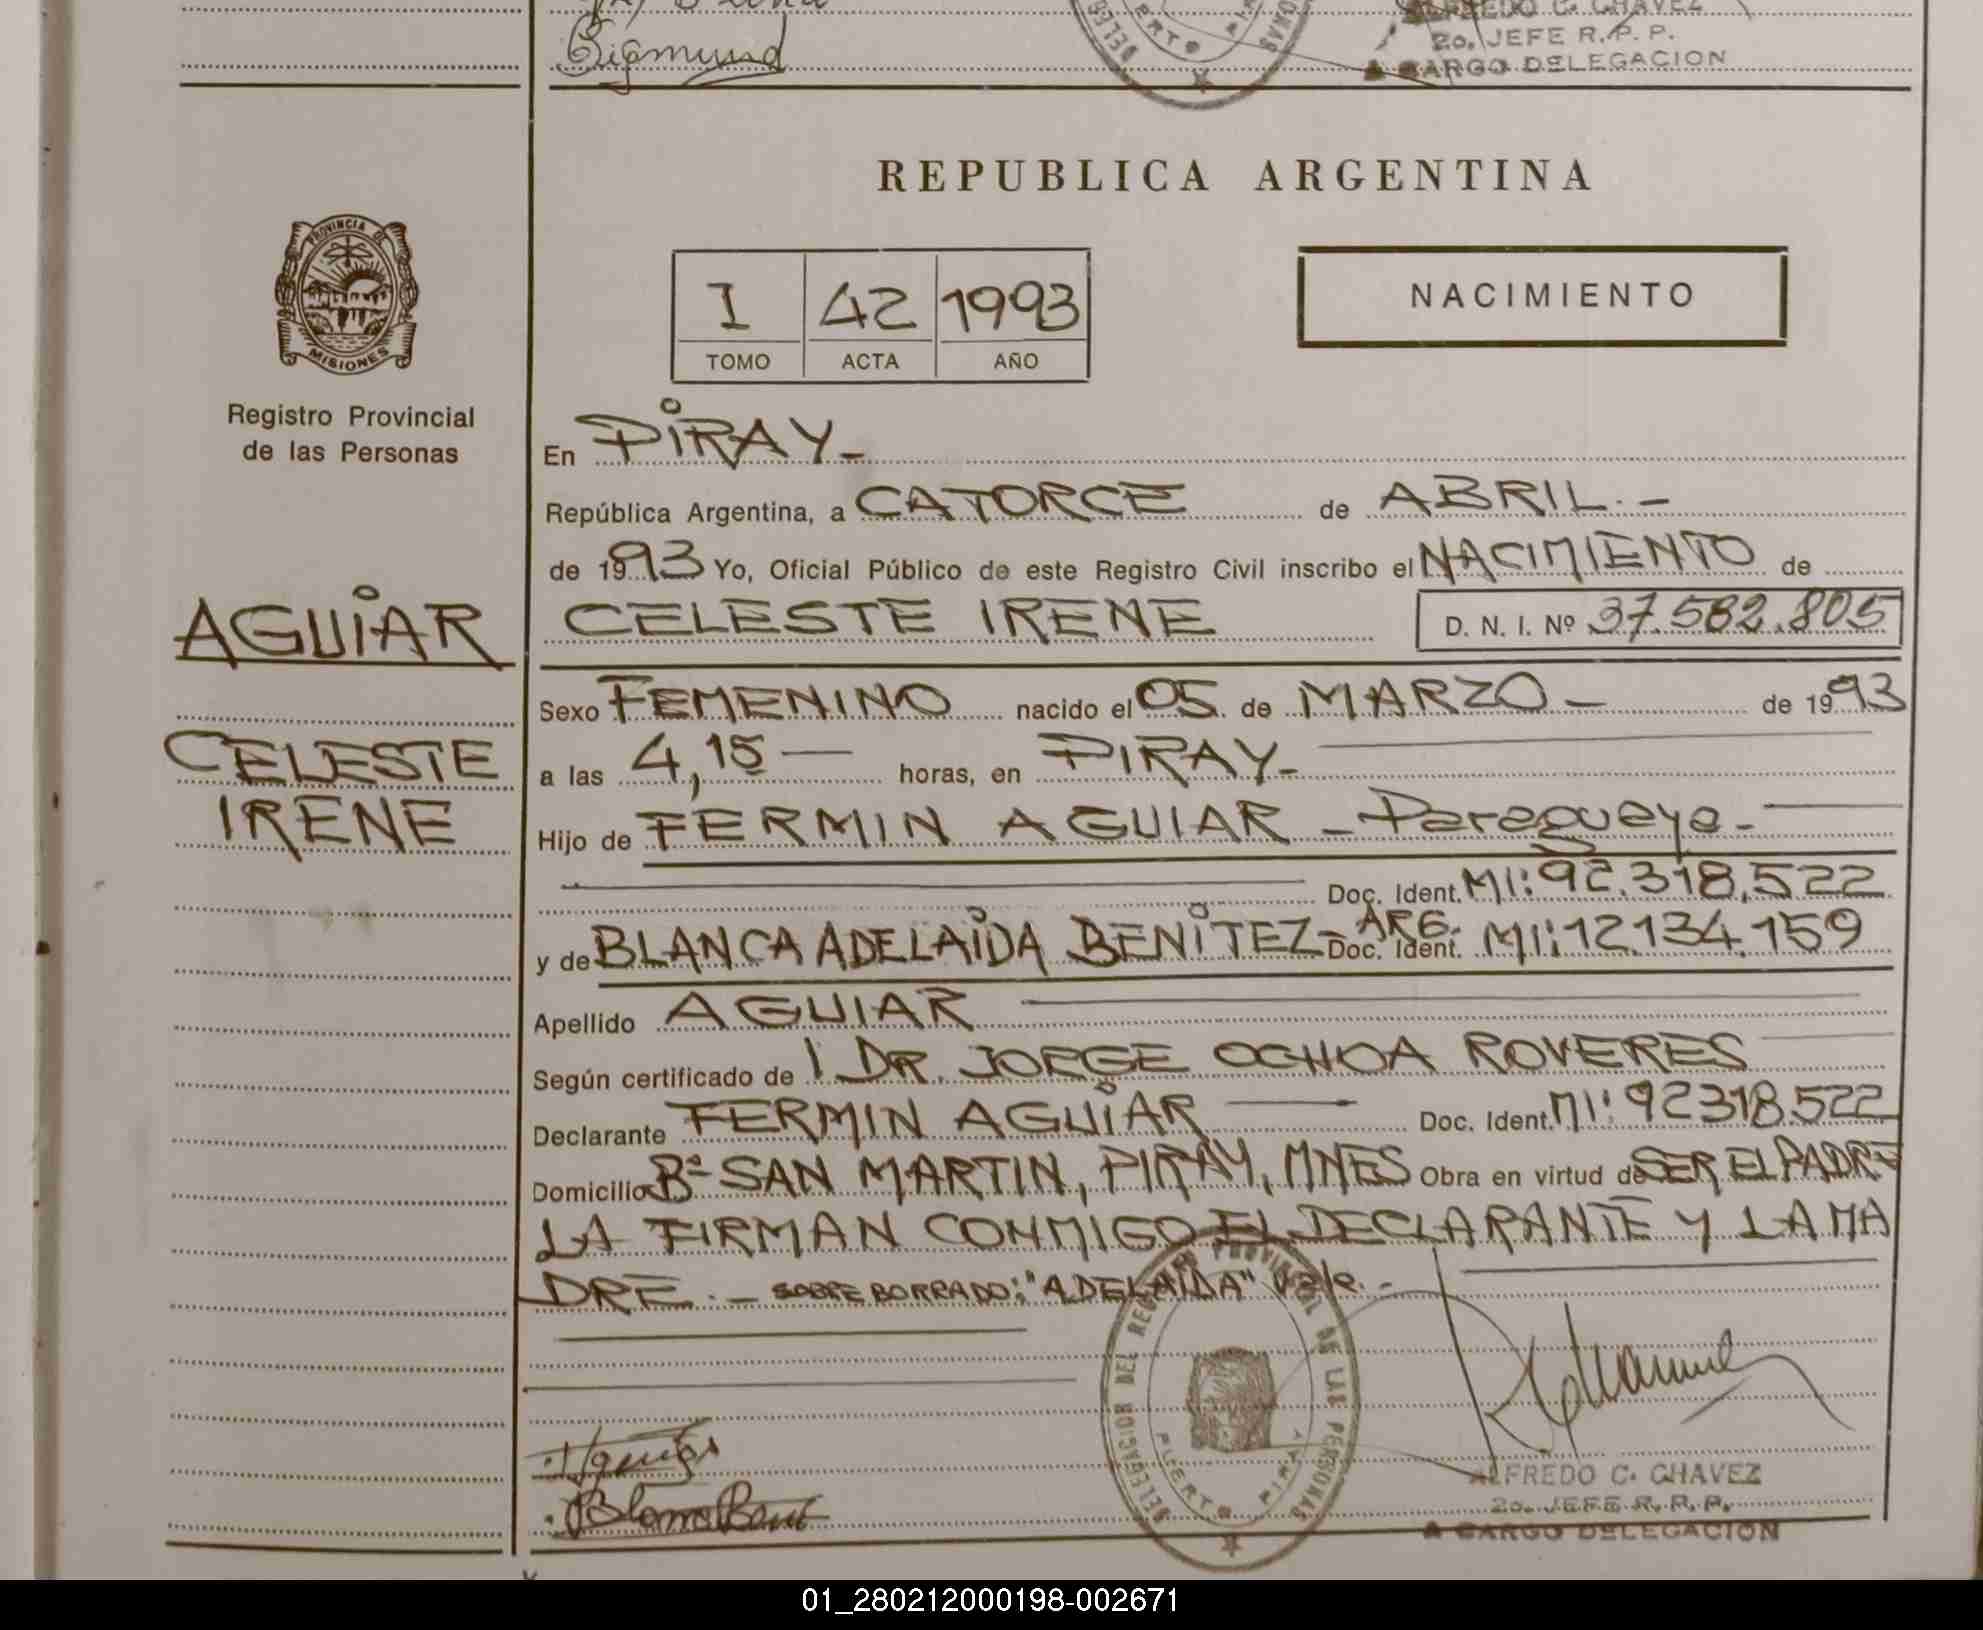 Sigmund
ALFREDO C. CHAVEZ
2o. JEFE R. P. P.
A CARGO DELEGACION
REPUBLICA ARGENTINA
PROVINCIA DE
MISIONES
I 42 1993
TOMO ACTA AÑO
NACIMIENTO
Registro Provincial
de las Personas
En PIRAY -
República Argentina, a CATORCE de ABRIL. -
de 1993 Yo, Oficial Público de este Registro Civil inscribo el NACIMIENTO de
AGUIAR
CELESTE IRENE D. N. I. Nº 37.582.805
Sexo FEMENINO nacido el 05 de MARZO - de 1993
CELESTE
a las 4,15 — horas, en PIRAY -
IRENE
Hijo de FERMIN AGUIAR - Paraguaya. -
Doc. Ident. MI: 92.318.522
y de BLANCA ADELAIDA BENITEZ - ARG. Doc. Ident. MI: 12.134.159
Apellido AGUIAR
Según certificado de 1 DR. JORGE OCHOA ROVERES
Declarante FERMIN AGUIAR — Doc. Ident. MI: 92318.522
Domicilio Bº SAN MARTIN, PIRAY, MNES Obra en virtud de SER EL PADRE
LA FIRMAN CONMIGO EL DECLARANTE Y LA MA
DRE. - SOBRE BORRADO: "ADELAIDA" Vale. -
DELEGACION DEL REGISTRO PROVINCIAL DE LAS PERSONAS
PUERTO PIRAY
ALFREDO C. CHAVEZ
2o. JEFE R. P. P.
A CARGO DELEGACION
01_280212000198-002671